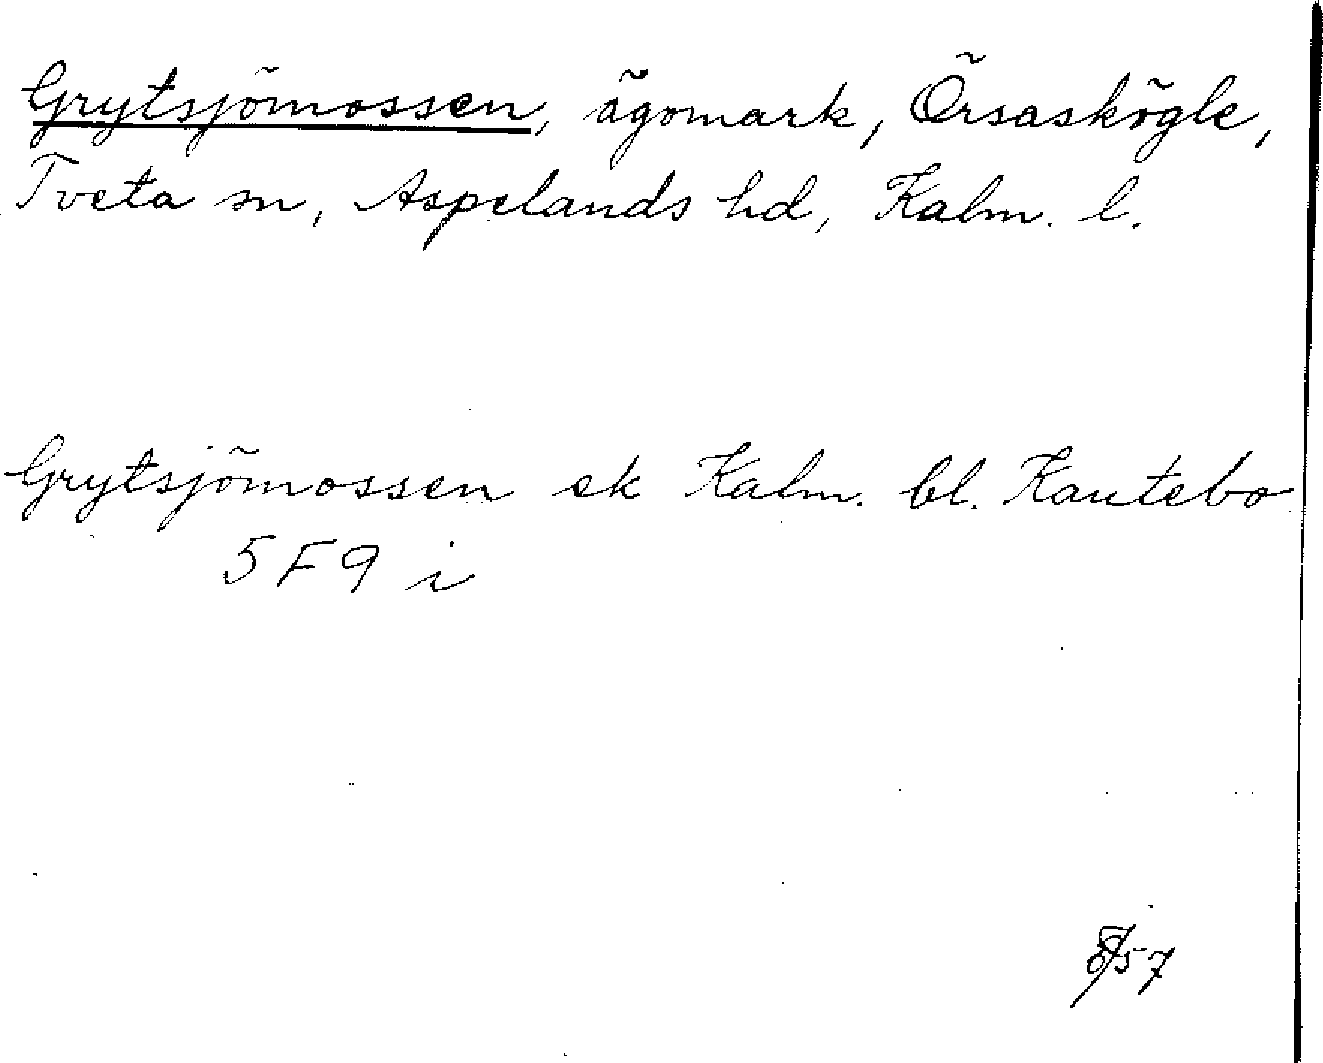 Grytsjömossen, ägomark, Örsaskögle,
Tveta sn, Aspelands hd, Kalm. l.
Grytsjömossen ek Kalm. bl. Kantebo
5F9 i